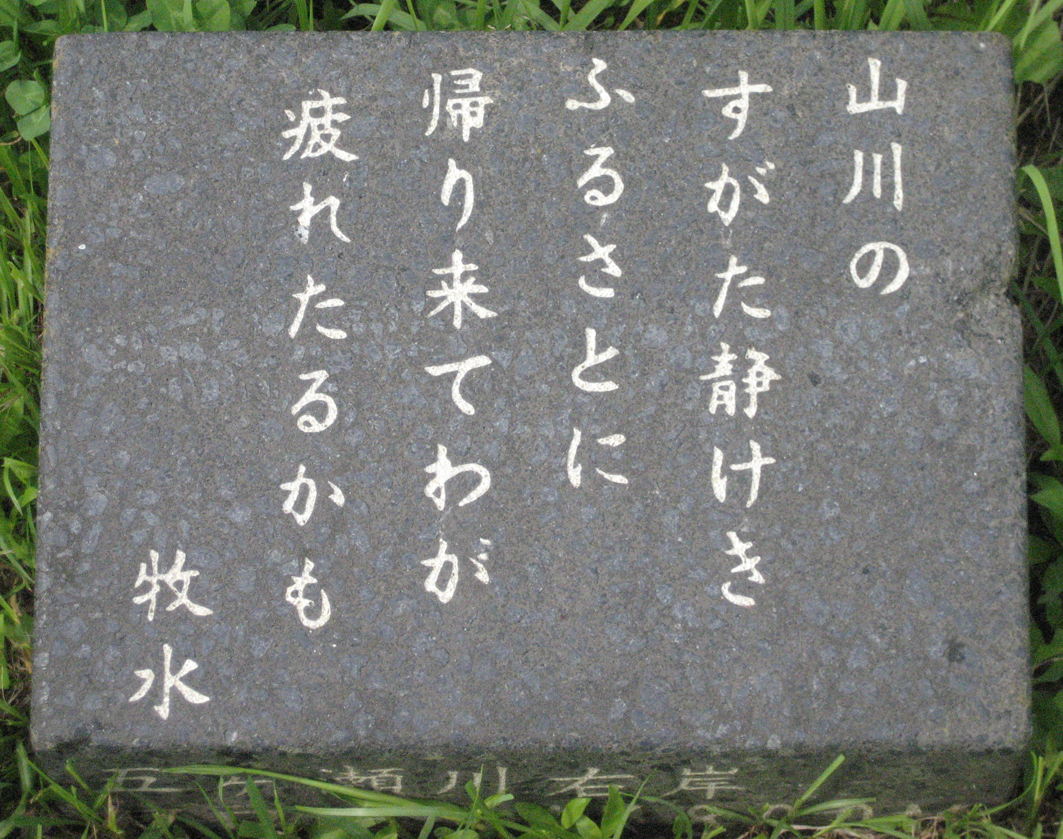 山川の
すがた静けき
ふるさとに
帰り来てわが
疲れたるかも
牧水
瀬川右岸